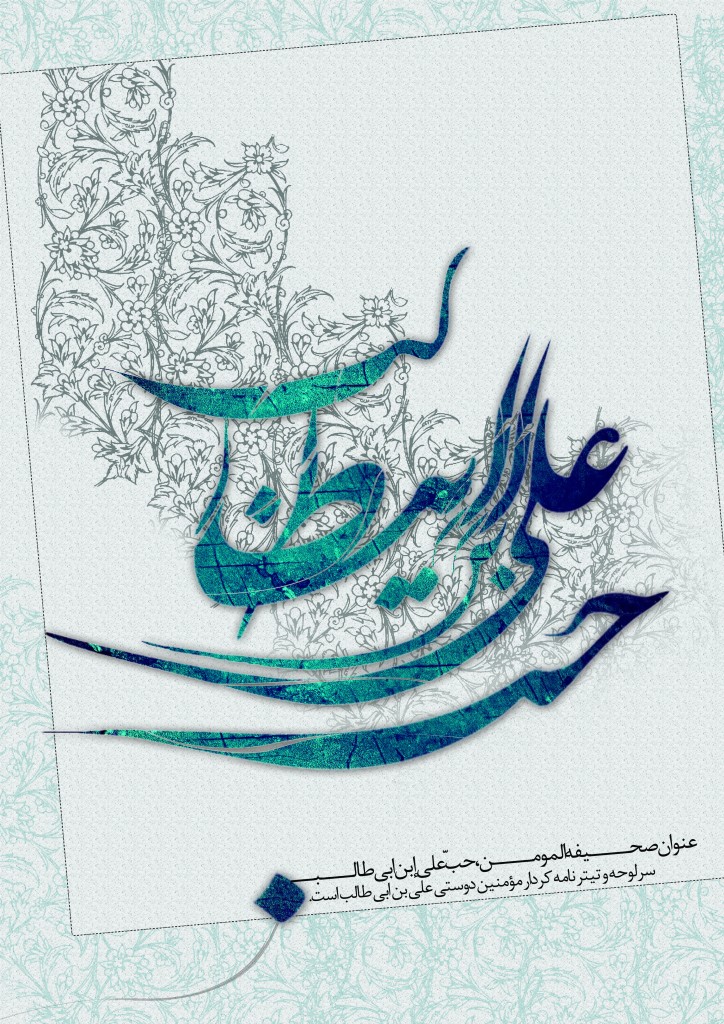 حب علی ابن ابیطالب
عنوان صحیفه المومن، حبّ علی ابن ابی طالب
سرلوحه و تیتر نامه کردار مؤمنین دوستی علی بن ابی طالب است.